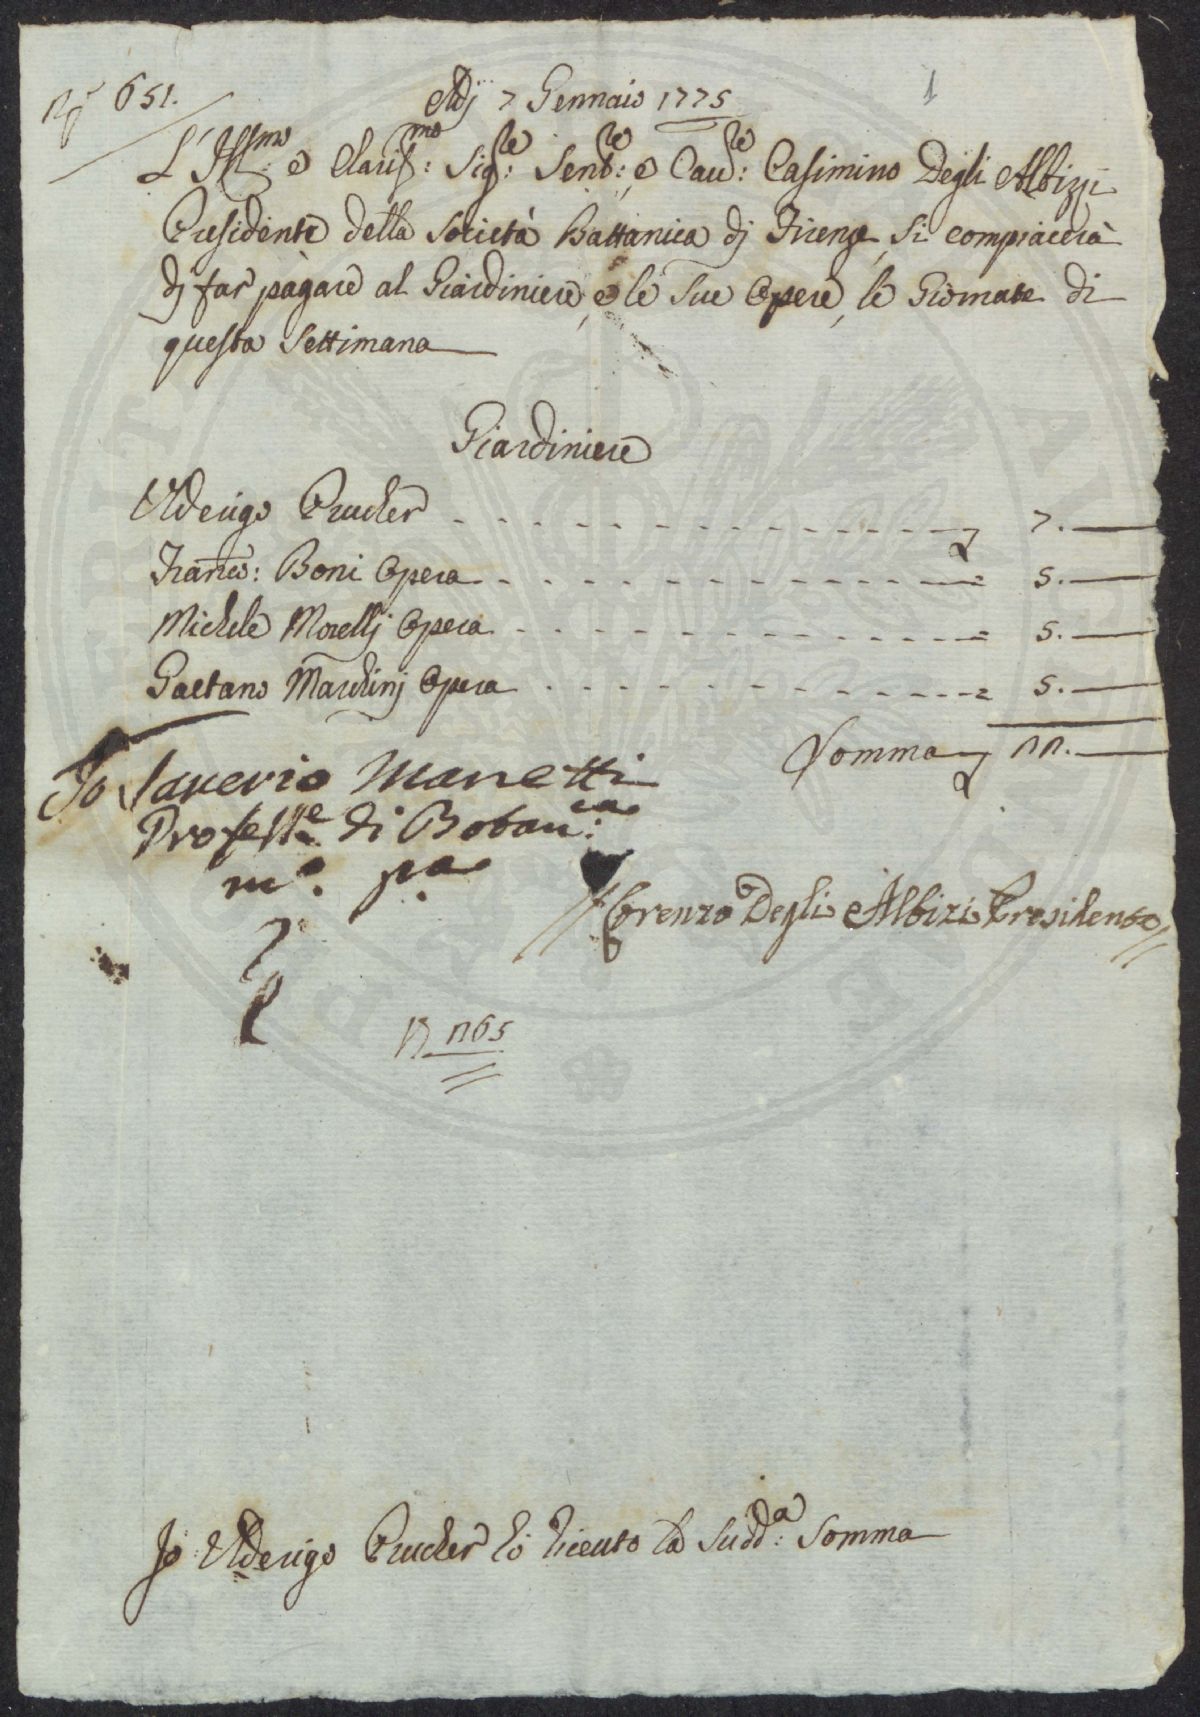 651.
1
Adj 7 Gennaio 1775
L'Ill:mo e Clarif:mo Sig:re Sen:re e Cav:re Casimino Degli Albizzi
Presidente della Società Bottanica dj Firenze, si compiacerà
dj far pagare al Giardiniere, e le sue Opere, le Giornate di
questa Settimana
Giardiniere
Ulderigo Prucher 7.
Franco: Boni Opera 5.
Michele Morellj Opera 5.
Gaetano Marchinj Opera 5.
Somma 22.
Io Saverio Manetti
Profess:re di Botan:ca
m:o p:a
Lorenzo Degli Albizi Presidente
1765
Io Ulderigo Prucher hò riceuto la Sudd:a Somma